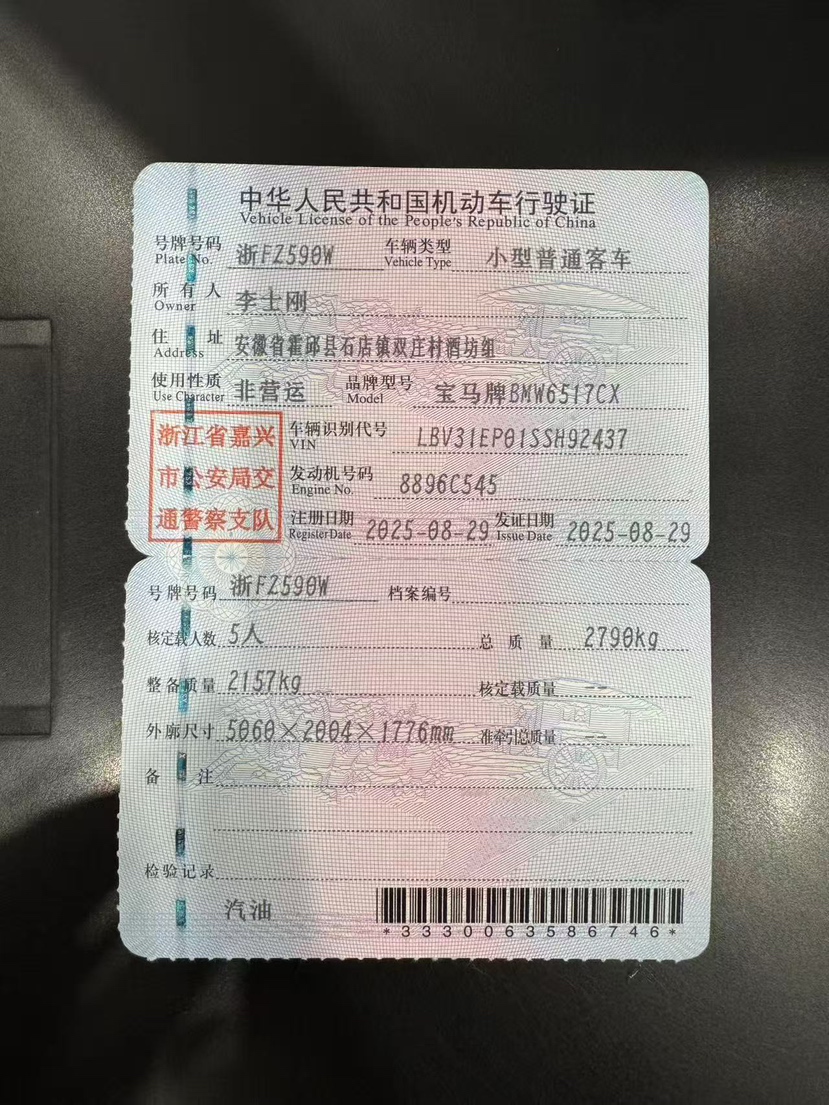 中华人民共和国机动车行驶证
Vehicle License of the People's Republic of China
号牌号码 浙FZ590W 车辆类型 小型普通客车
Plate No Vehicle Type
所有人 李士刚
Owner
住址 安徽省霍邱县石店镇双庄村酒坊组
Address
使用性质 非营运 品牌型号 宝马牌BMW6517CX
Use Character Model
浙江省嘉兴
市公安局交
通警察支队
车辆识别代号 LBV31EP01SSH92437
VIN
发动机号码 8896C545
Engine No.
注册日期 2025-08-29 发证日期 2025-08-29
Register Date Issue Date
号牌号码 浙FZ590W 档案编号
核定载人数 5人 总质量 2790kg
整备质量 2157kg 核定载质量 --
外廓尺寸 5060×2004×1776mm 准牵引总质量 --
备注
检验记录
汽油
*3330063586746*